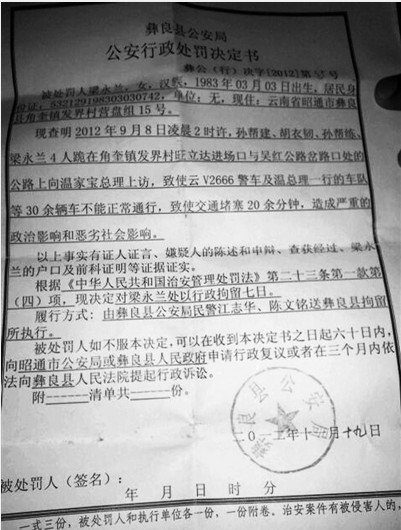 彝良县公安局
公安行政处罚决定书
彝公（行）决字[2012]第 号
被处罚人梁永兰，女，汉族，1983年03月03日出生，居民身
份证，532129198303030742，单位：无，现住：云南省昭通市彝良
县角奎镇发界村营盘组15号。
现查明2012年9月8日凌晨2时许，孙帮建、胡衣韧、孙帮练、
梁永兰4人跪在角奎镇发界村旺立达进场口与吴红公路岔路口处的
公路上向温家宝总理上访，致使云V2666警车及温总理一行的车队
等30余辆车不能正常通行，致使交通堵塞20余分钟，造成严重的
政治影响和恶劣社会影响。
以上事实有证人证言、嫌疑人的陈述和申辩、查获经过、梁永
兰的户口及前科证明等证据证实。
根据《中华人民共和国治安管理处罚法》第二十三条第一款第
（四）项，现决定对梁永兰处以行政拘留七日。
履行方式：由彝良县公安局民警江志华、陈文铭送彝良县拘留
所执行。
被处罚人如不服本决定，可以在收到本决定书之日起六十日内，
向昭通市公安局或彝良县人民政府申请行政复议或者在三个月内依
法向彝良县人民法院提起行政诉讼。
附------清单共______份。
彝良县公安局
二〇一二年十一月十九日
被处罚人（签名）：
年 月 日 时 分
一式三份，被处罚人和执行单位各一份，一份附卷。治安案件有被侵害人的，